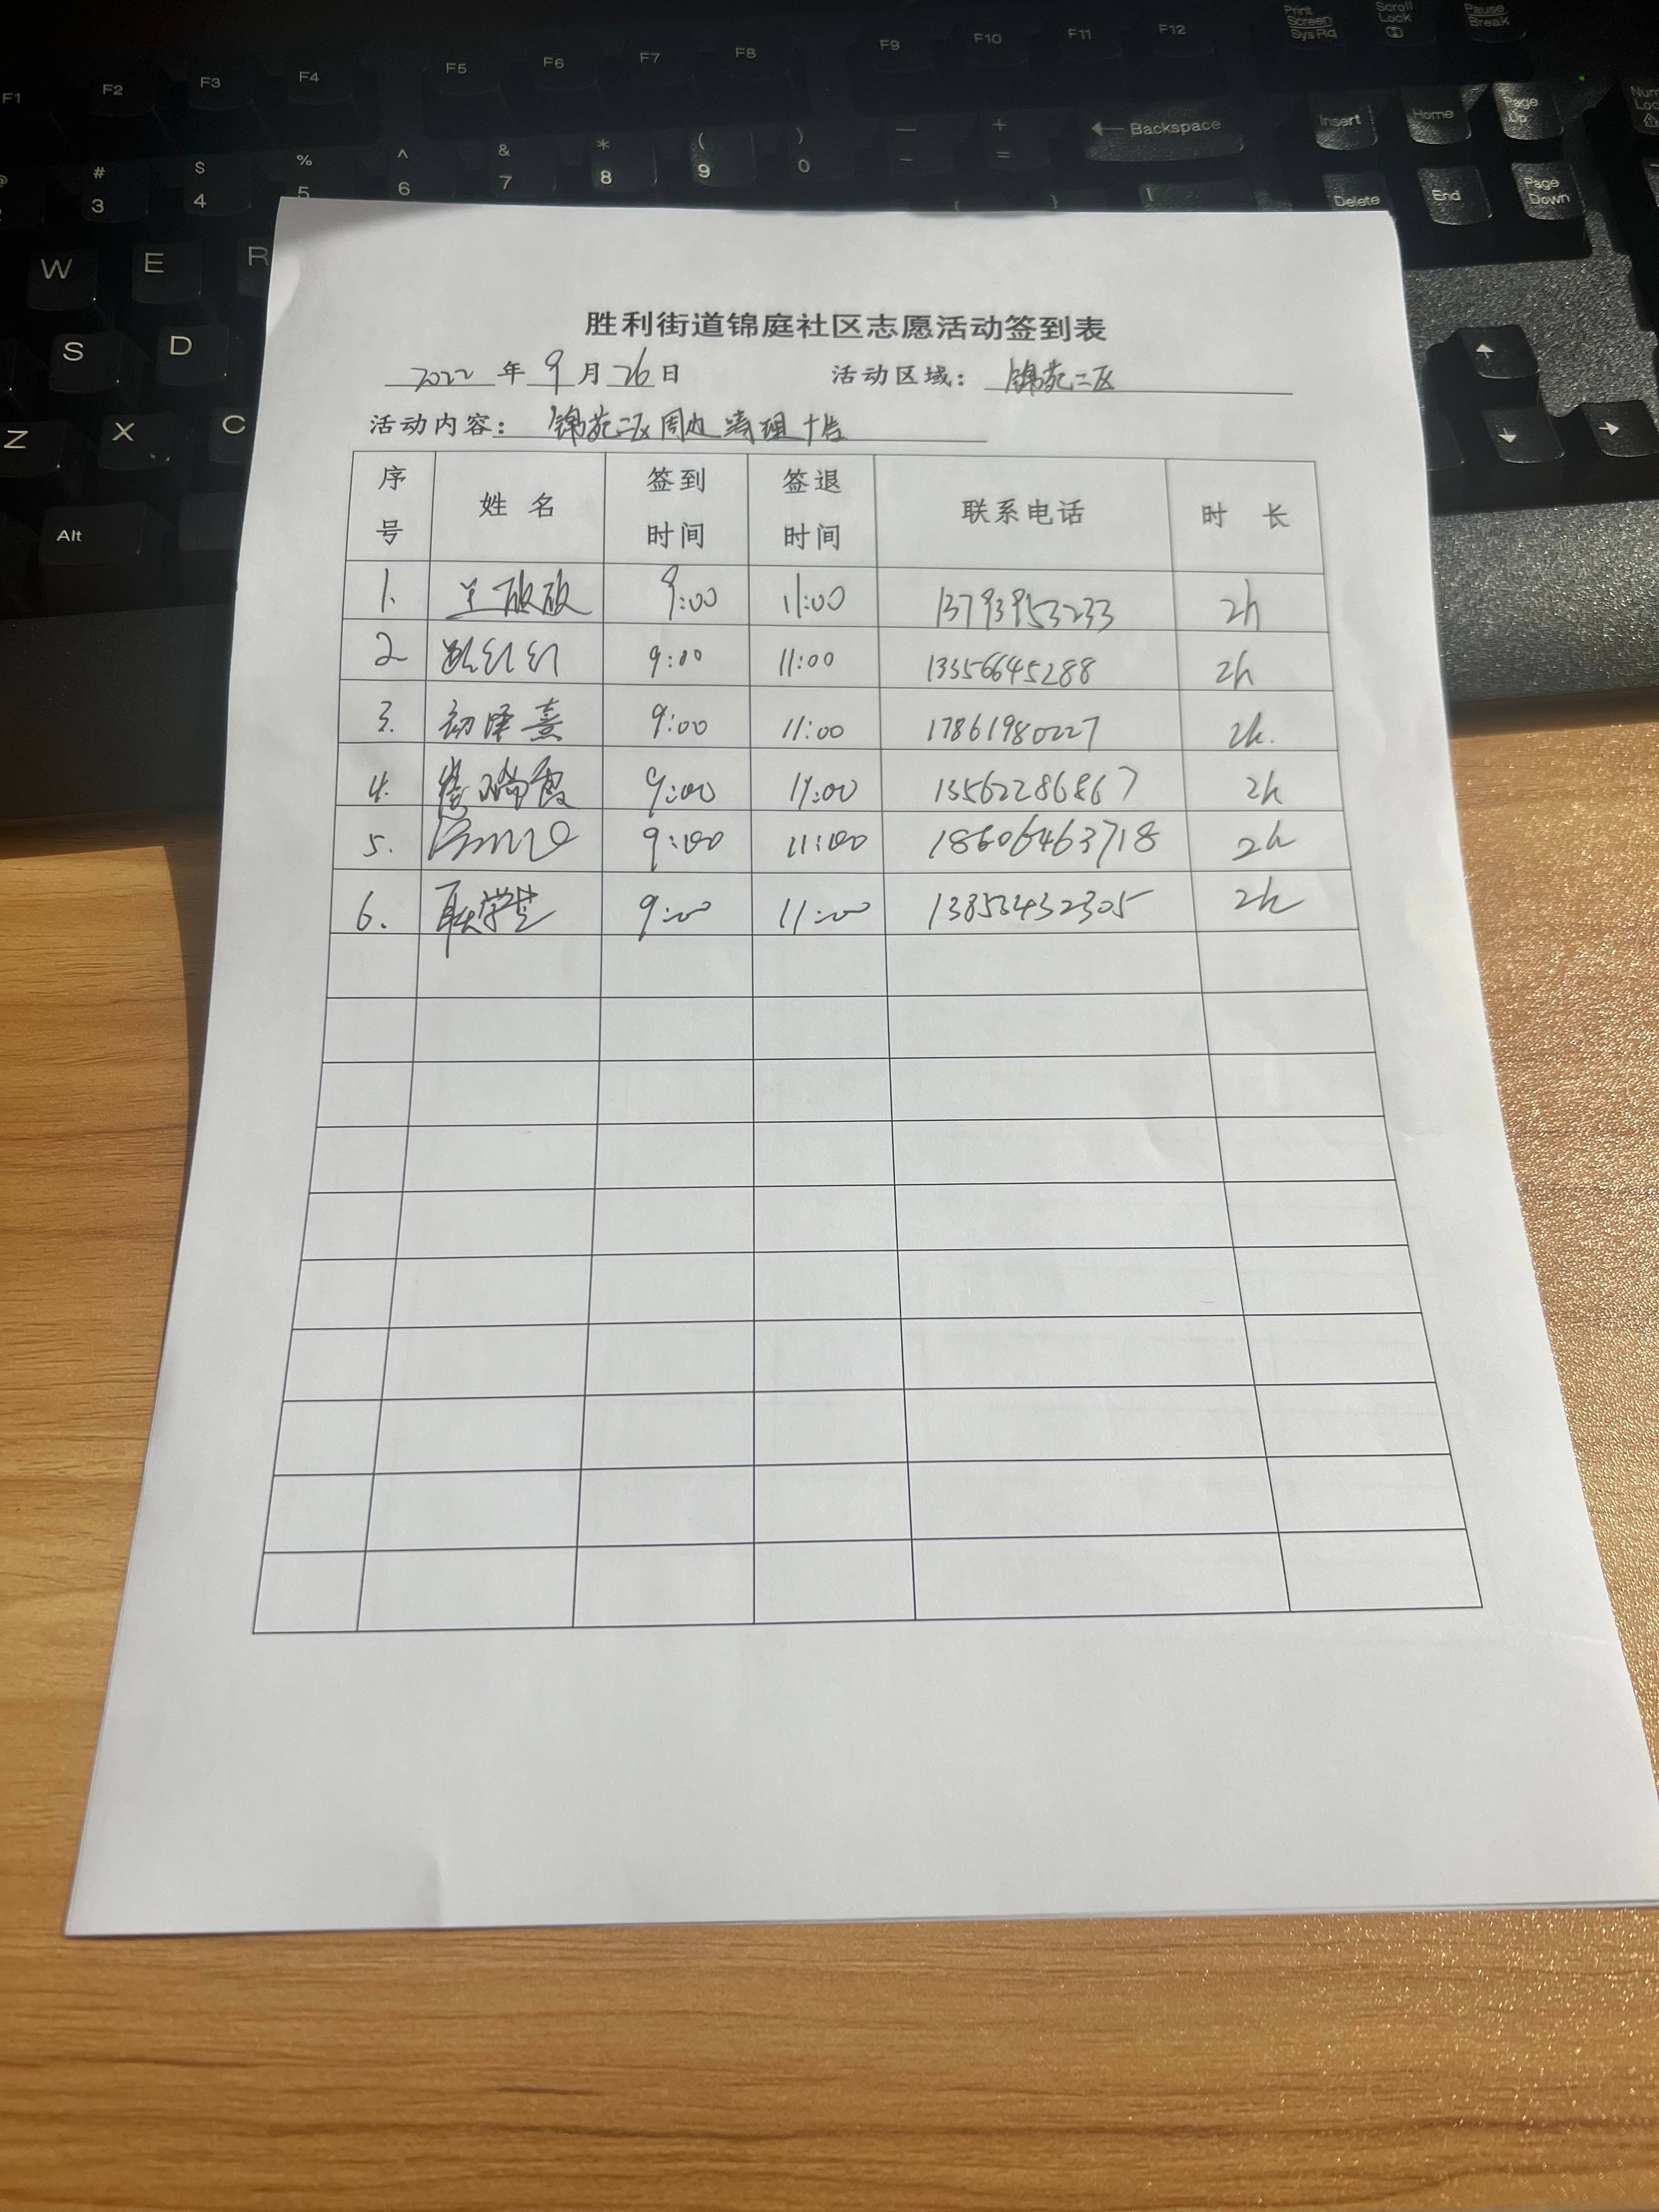 Print Screen SysRq
Scroll Lock
Pause Break
F1 F2 F3 F4 F5 F6 F7 F8 F9 F10 F11 F12
# $ % ^ & * ( ) — +
3 4 5 6 7 8 9 0 - = Backspace
Insert Home Page Up
Delete End Page Down
W E R
S D
Z X C
Alt
胜利街道锦庭社区志愿活动签到表
2022年9月26日 活动区域：锦苑二区
活动内容：锦苑二区周边清理卡片
序号 姓名 签到时间 签退时间 联系电话 时长
1. 9:00 11:00 13793953233 2h
2 红红 9:00 11:00 13356645288 2h
3. 初泽熹 9:00 11:00 17861980227 2h.
4. 瑞霞 9:00 11:00 13562286867 2h
5. 9:00 11:00 18606463718 2h
6. 9:00 11:00 13853432305 2h